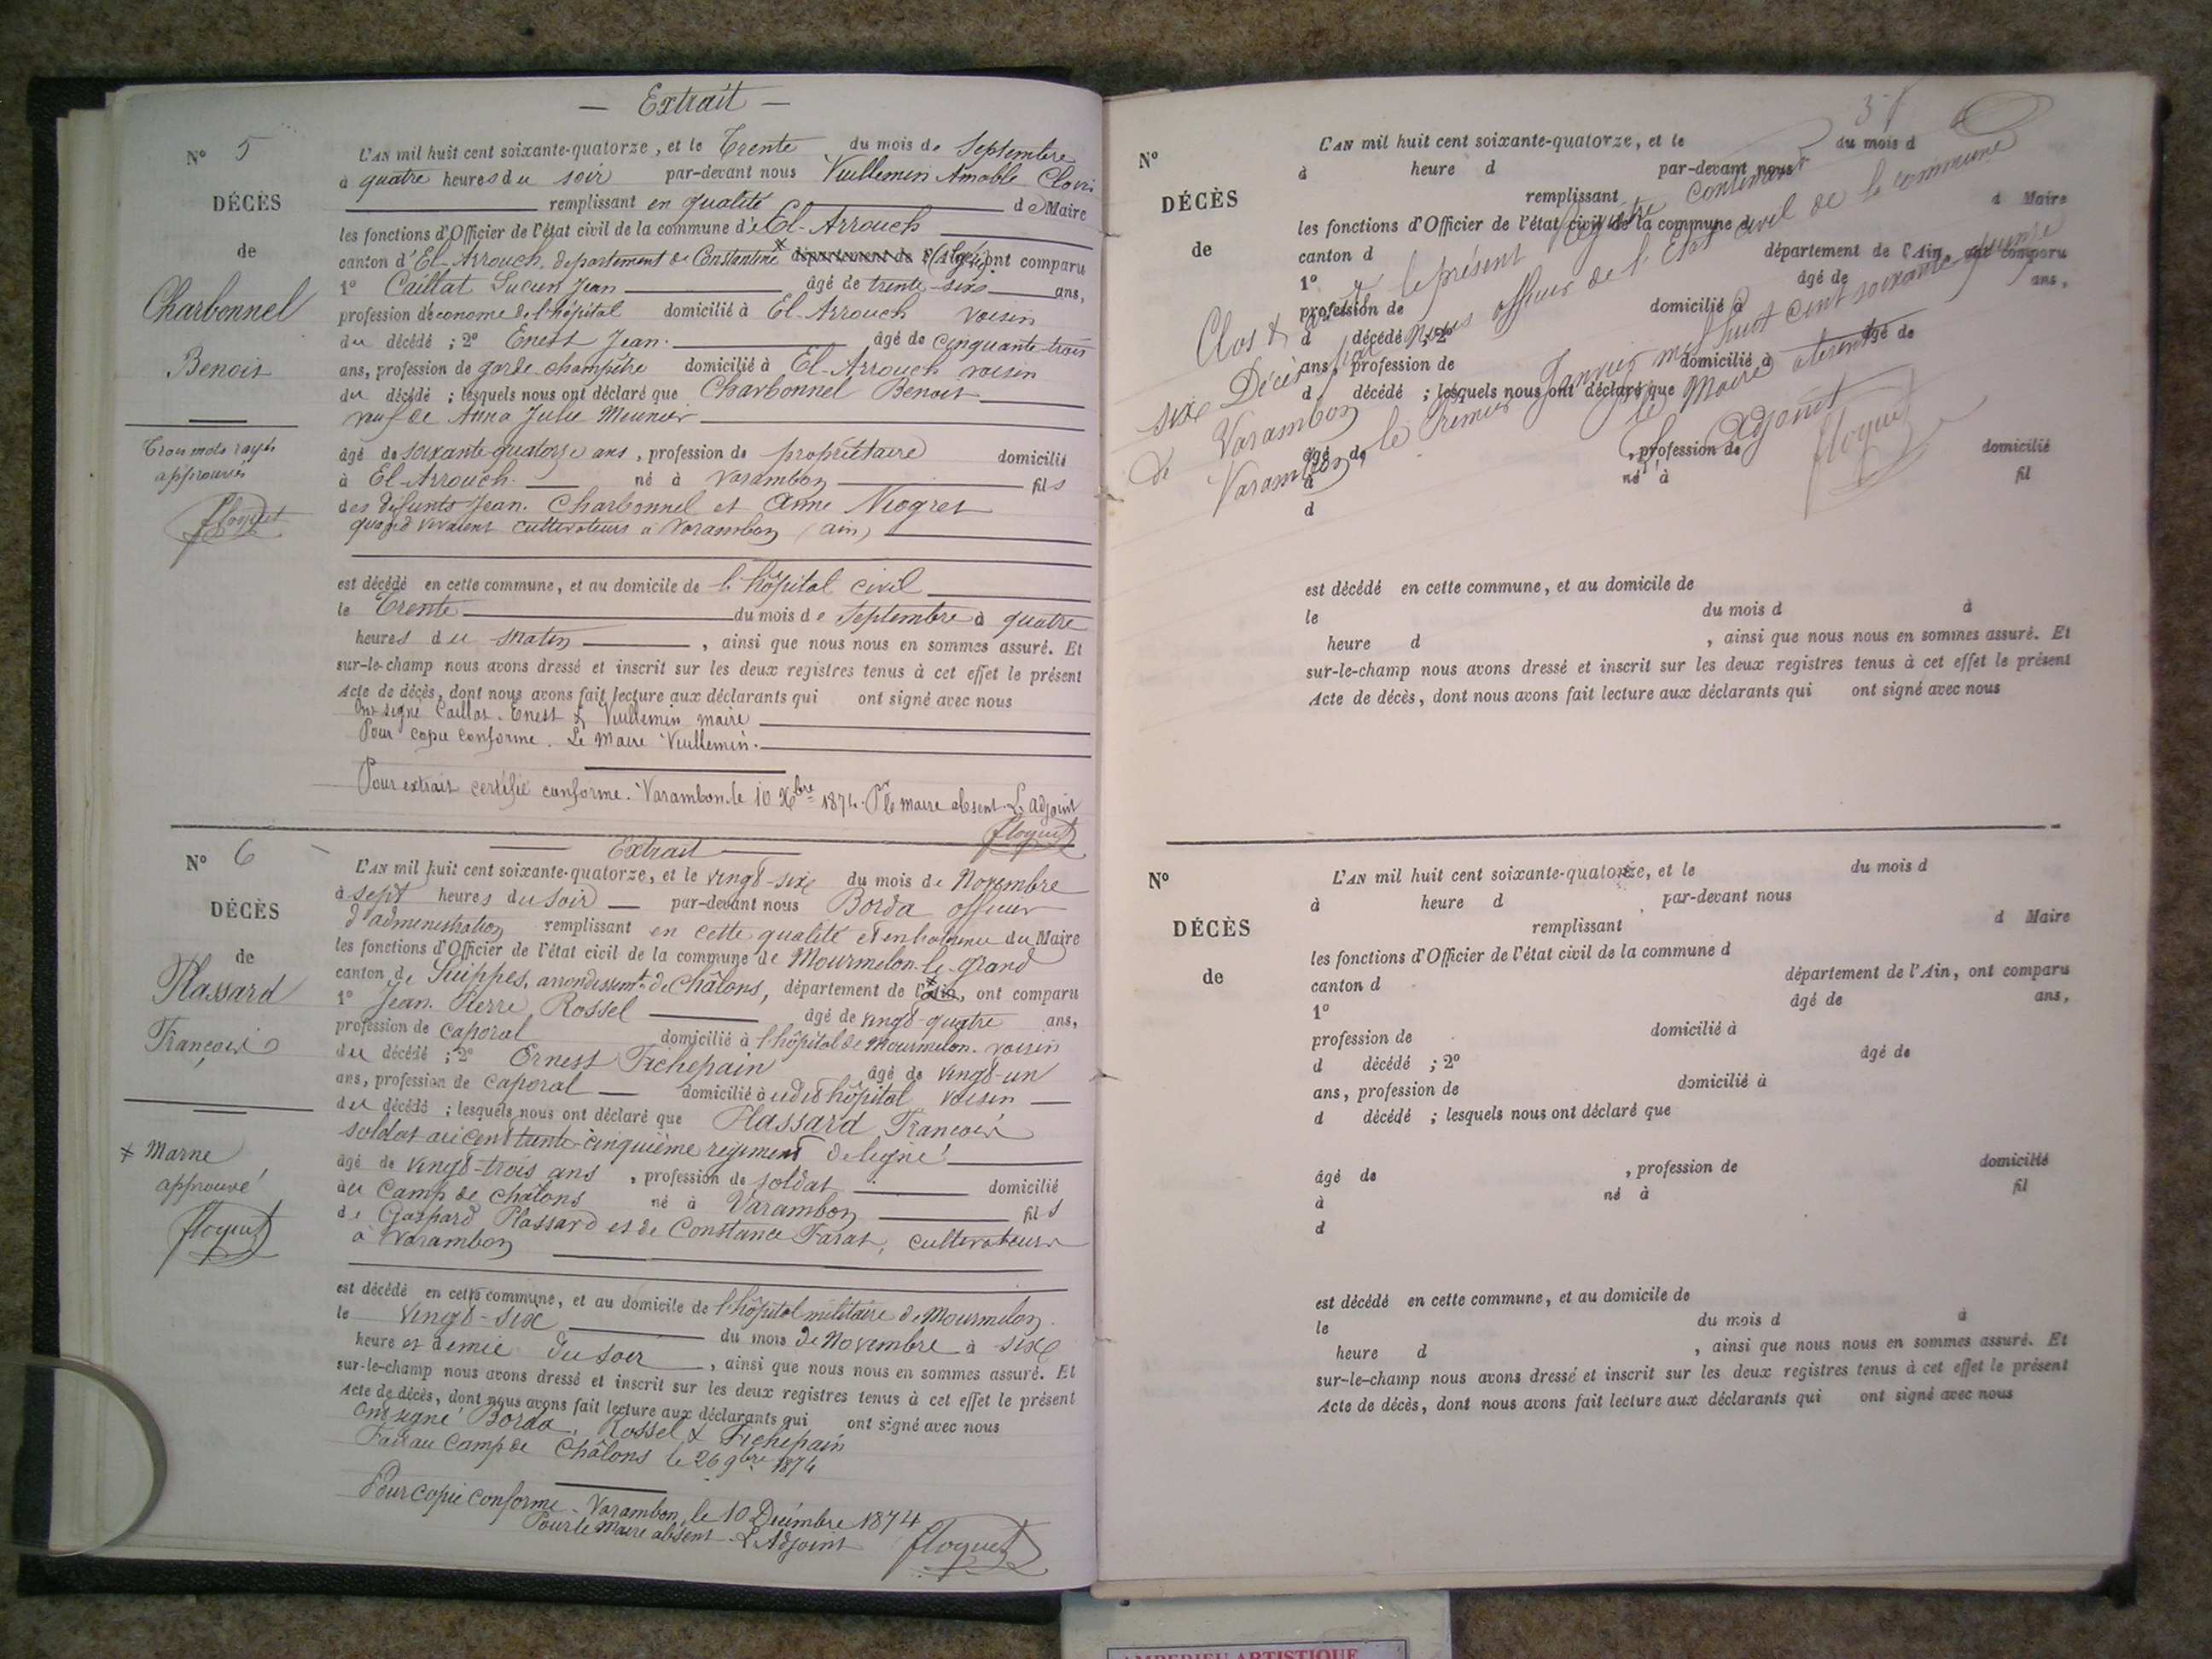 — Extrait —
N° 5
DÉCÈS
de
Charbonnel
Benoit
Trois mots rayés
approuvés
floquet
L'AN mil huit cent soixante-quatorze, et le Trente du mois de Septembre
à quatre heures du soir par-devant nous Vuillemin Amable Clovis
remplissant en qualité de Maire
les fonctions d'Officier de l'état civil de la commune d'El-Arrouch
canton d'El-Arrouch, département de Constantine département de l'(Algérie) ont comparu
1° Caillat Lucien Jean âgé de trente-six ans,
profession d'économe de l'hôpital domicilié à El-Arrouch voisin
du décédé ; 2° Enest Jean. âgé de cinquante-trois
ans, profession de garde-champêtre domicilié à El-Arrouch voisin
du décédé ; lesquels nous ont déclaré que Charbonnel Benoit
veuf de Anna Julie Meunier
âgé de soixante-quatorze ans, profession de propriétaire domicilié
à El-Arrouch né à Varambon fils
des défunts Jean Charbonnel et Anne Niogret
quand vivaient cultivateurs à Varambon (ain)
est décédé en cette commune, et au domicile de l'hôpital civil
le Trente du mois de Septembre à quatre
heures du matin , ainsi que nous nous en sommes assuré. Et
sur-le-champ nous avons dressé et inscrit sur les deux registres tenus à cet effet le présent
Acte de décès, dont nous avons fait lecture aux déclarants qui ont signé avec nous
Ont signé Caillat. Enest & Vuillemin maire
Pour copie conforme. Le Maire Vuillemin.
Pour extrait certifié conforme. Varambon le 10 Xbre 1874. Pr le maire absent. L'adjoint
floquet
Extrait
N° 6
DÉCÈS
de
Plassard
François
* Marne
approuvé
floquet
L'AN mil huit cent soixante-quatorze, et le vingt-six du mois de Novembre
à sept heures du soir par-devant nous Borda officier
d'administration remplissant en cette qualité du Maire
les fonctions d'Officier de l'état civil de la commune de Mourmelon-le-Grand
canton de Suippes, arrondissemt de Châlons, département de l'Ain, ont comparu
1° Jean Pierre Rossel âgé de vingt-quatre ans,
profession de caporal domicilié à l'hôpital de Mourmelon. voisin
du décédé ; 2° Ernest Fichepain âgé de vingt-un
ans, profession de caporal domicilié à udit hôpital voisin
du décédé ; lesquels nous ont déclaré que Plassard François
soldat au cent trente-cinquième régiment de ligne
âgé de vingt-trois ans, profession de soldat domicilié
au camp de Châlons né à Varambon fils
de Gaspard Plassard et de Constance Farat, cultivateurs
à Varambon
est décédé en cette commune, et au domicile de l'hôpital militaire de Mourmelon.
le vingt-six du mois de Novembre à six
heure et demie du soir , ainsi que nous nous en sommes assuré. Et
sur-le-champ nous avons dressé et inscrit sur les deux registres tenus à cet effet le présent
Acte de décès, dont nous avons fait lecture aux déclarants qui ont signé avec nous
Ont signé Borda, Rossel & Fichepain
Fait au Camp de Châlons le 26 9bre 1874
Pour copie conforme - Varambon, le 10 Décembre 1874
Pour le Maire absent - L'Adjoint floquet
N°
DÉCÈS
de
L'AN mil huit cent soixante-quatorze, et le du mois d
à heure d par-devant nous
remplissant d Maire
les fonctions d'Officier de l'état civil de la commune d
canton d département de l'Ain, ont comparu
1° âgé de ans,
profession de domicilié à
d décédé ; 2° âgé de
ans, profession de domicilié à
d décédé ; lesquels nous ont déclaré que
âgé de , profession de domicilié
à né à fil
d
Clos & le présent Registre contenant
six Décès par Nous officier de l'Etat civil de la commune
de Varambon
Varambon, le Premier Janvier mil huit cent soixante quinze
Pr le Maire absent
L'adjoint
floquet
est décédé en cette commune, et au domicile de
le du mois d à
heure d , ainsi que nous nous en sommes assuré. Et
sur-le-champ nous avons dressé et inscrit sur les deux registres tenus à cet effet le présent
Acte de décès, dont nous avons fait lecture aux déclarants qui ont signé avec nous
N°
DÉCÈS
de
L'AN mil huit cent soixante-quatorze, et le du mois d
à heure d par-devant nous
remplissant d Maire
les fonctions d'Officier de l'état civil de la commune d
canton d département de l'Ain, ont comparu
1° âgé de ans,
profession de domicilié à
d décédé ; 2° âgé de
ans, profession de domicilié à
d décédé ; lesquels nous ont déclaré que
âgé de , profession de domicilié
à né à fil
d
est décédé en cette commune, et au domicile de
le du mois d à
heure d , ainsi que nous nous en sommes assuré. Et
sur-le-champ nous avons dressé et inscrit sur les deux registres tenus à cet effet le présent
Acte de décès, dont nous avons fait lecture aux déclarants qui ont signé avec nous